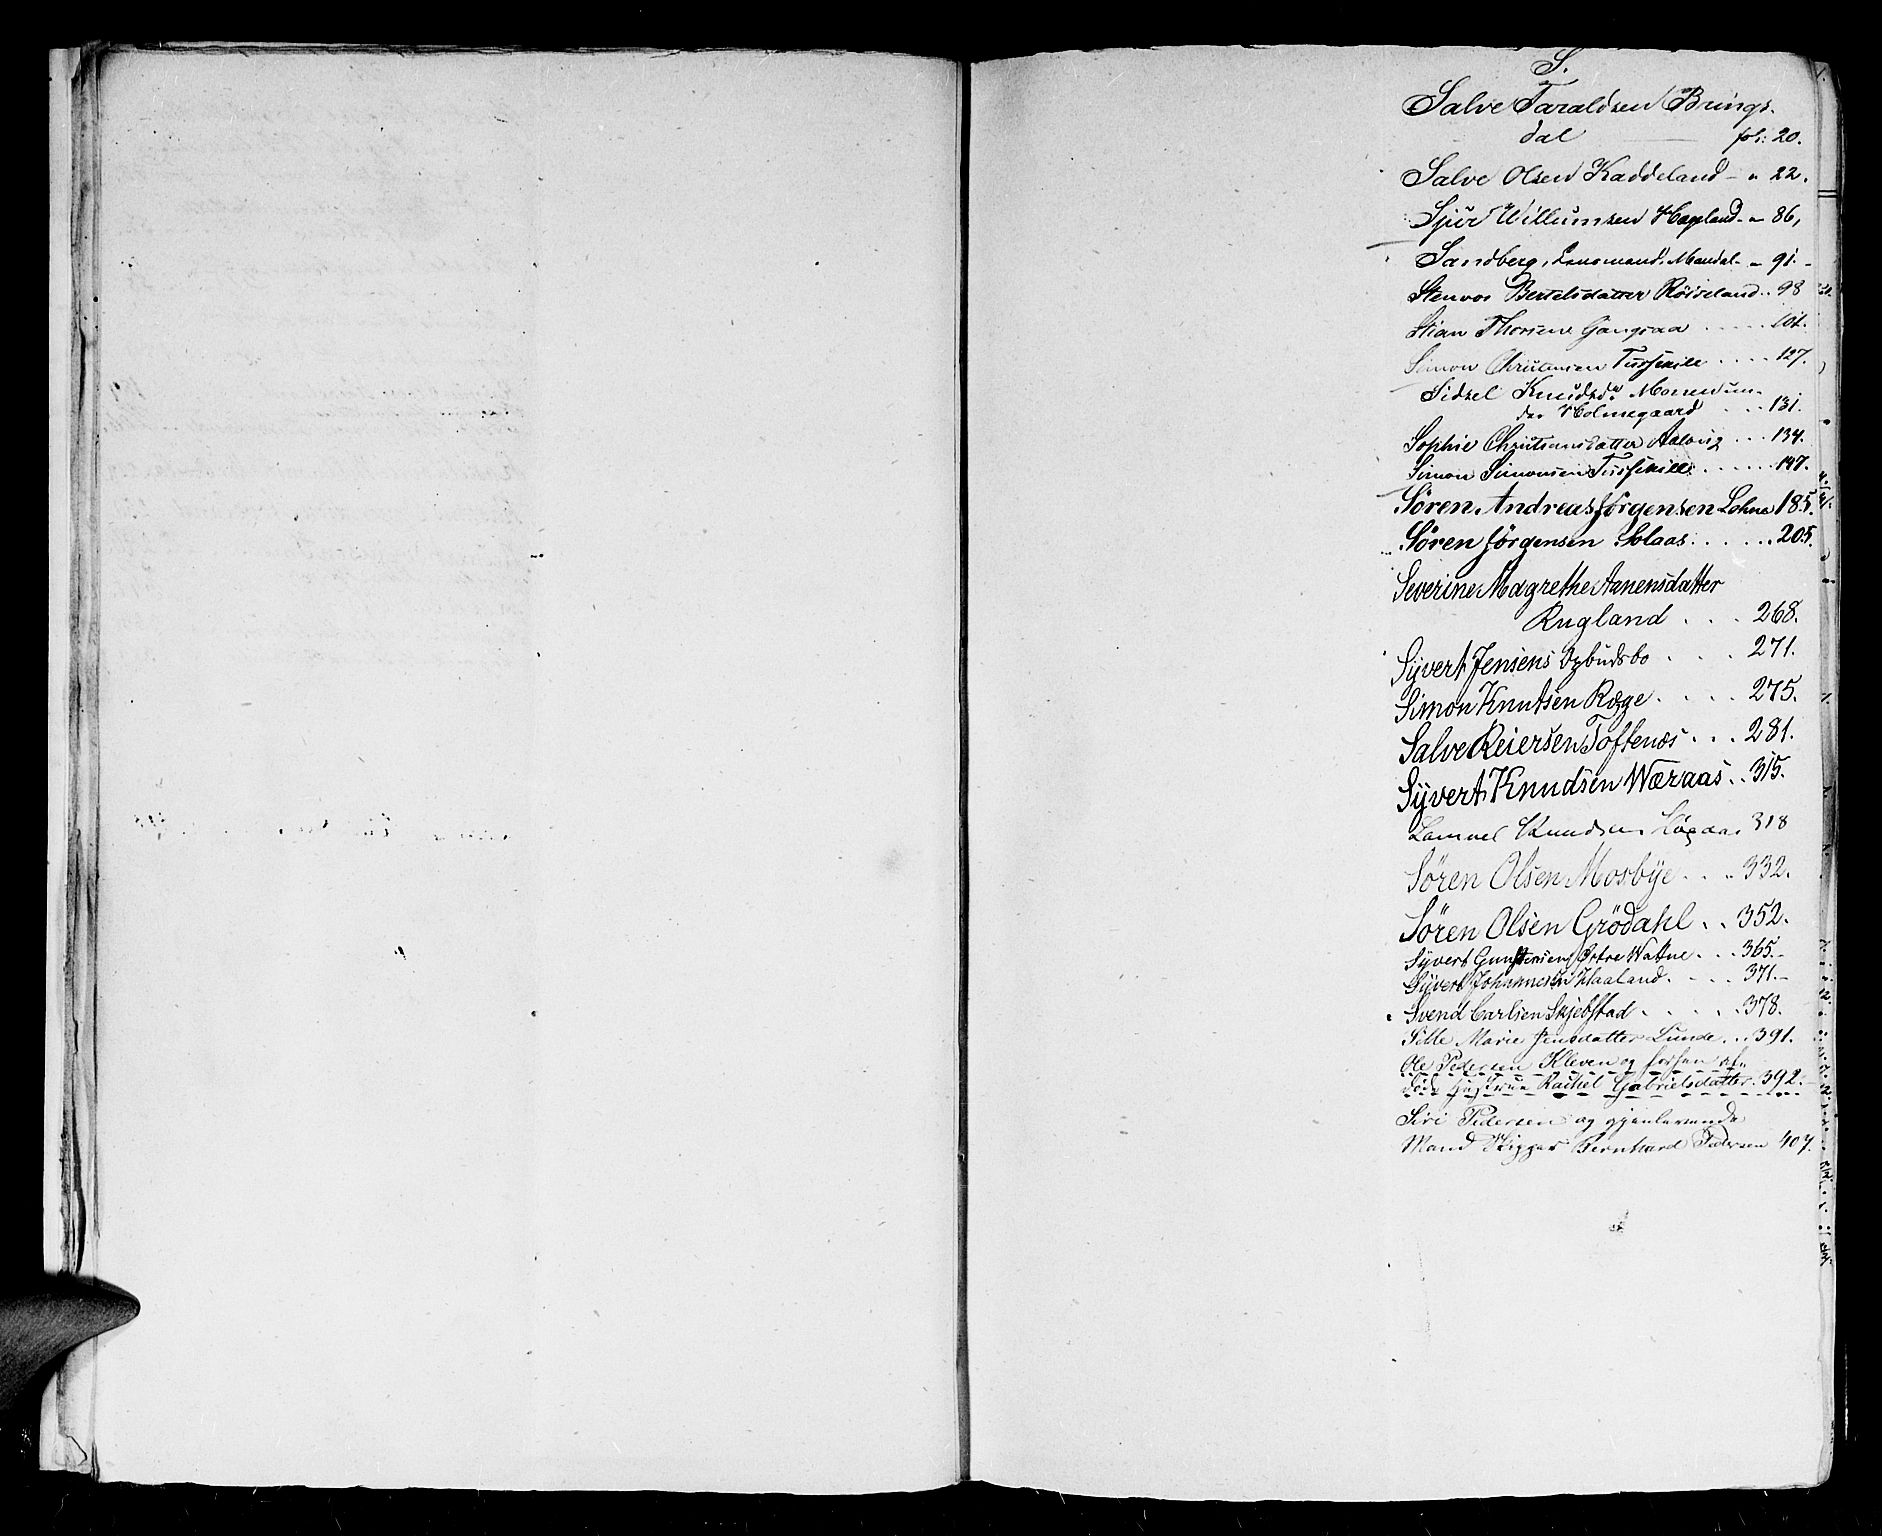 S.
Salve Taraldsen Brings-
dal fol: 20.
Salve Olsen Kaddeland - " 22.
Sjur Willumsen Hageland - " 86,
Sandberg, Lensmand, Mandal - " 91.
Stenvor Bertelsdatter Røsseland .. 98
Stian Thorsen Gangsaa ..... 101.
Simon Christensen Tusseneset .... 127.
Sidsel Knudsdr
der Holmegaard .... 131.
Sophie Christiansdatter Aalvig ... 134.
Simon Simonsen ...... 147.
Sören Andreas Jörgensen Lohne 185.
Sören Jörgensen Solaas ...... 205.
Severine Magrethe Aanensdatter
Rugland . . . 268.
Syvert Jensens Opbudsbo . . . . 271.
Simon Knutsen Ræge . . . . . 275.
Salve Reiersen Toftenæs . . . 281.
Syvert Knudsen Wæraas .. 315.
Samuel Knudsen Høgaas 318
Sören Olsen Mosbye . . .. 332.
Sören Olsen Grödahl . . 352.
Syvert Gunstensen Østre Wattne . . . 365.-
Syvert Johannesen Haaland . . . . 371.-
Svend Carlsen Skjebstad . . . . . 378.
Sille Marie Jensdatter Lunde . .. 391.
Ole Pedersen Kleven og forhen af-
døde Hustrue Rachel Gabrielsdatter. 392.-
Siri Pedersen og gjenlevende
Mand Skipper Bernhard Pedersen 407.